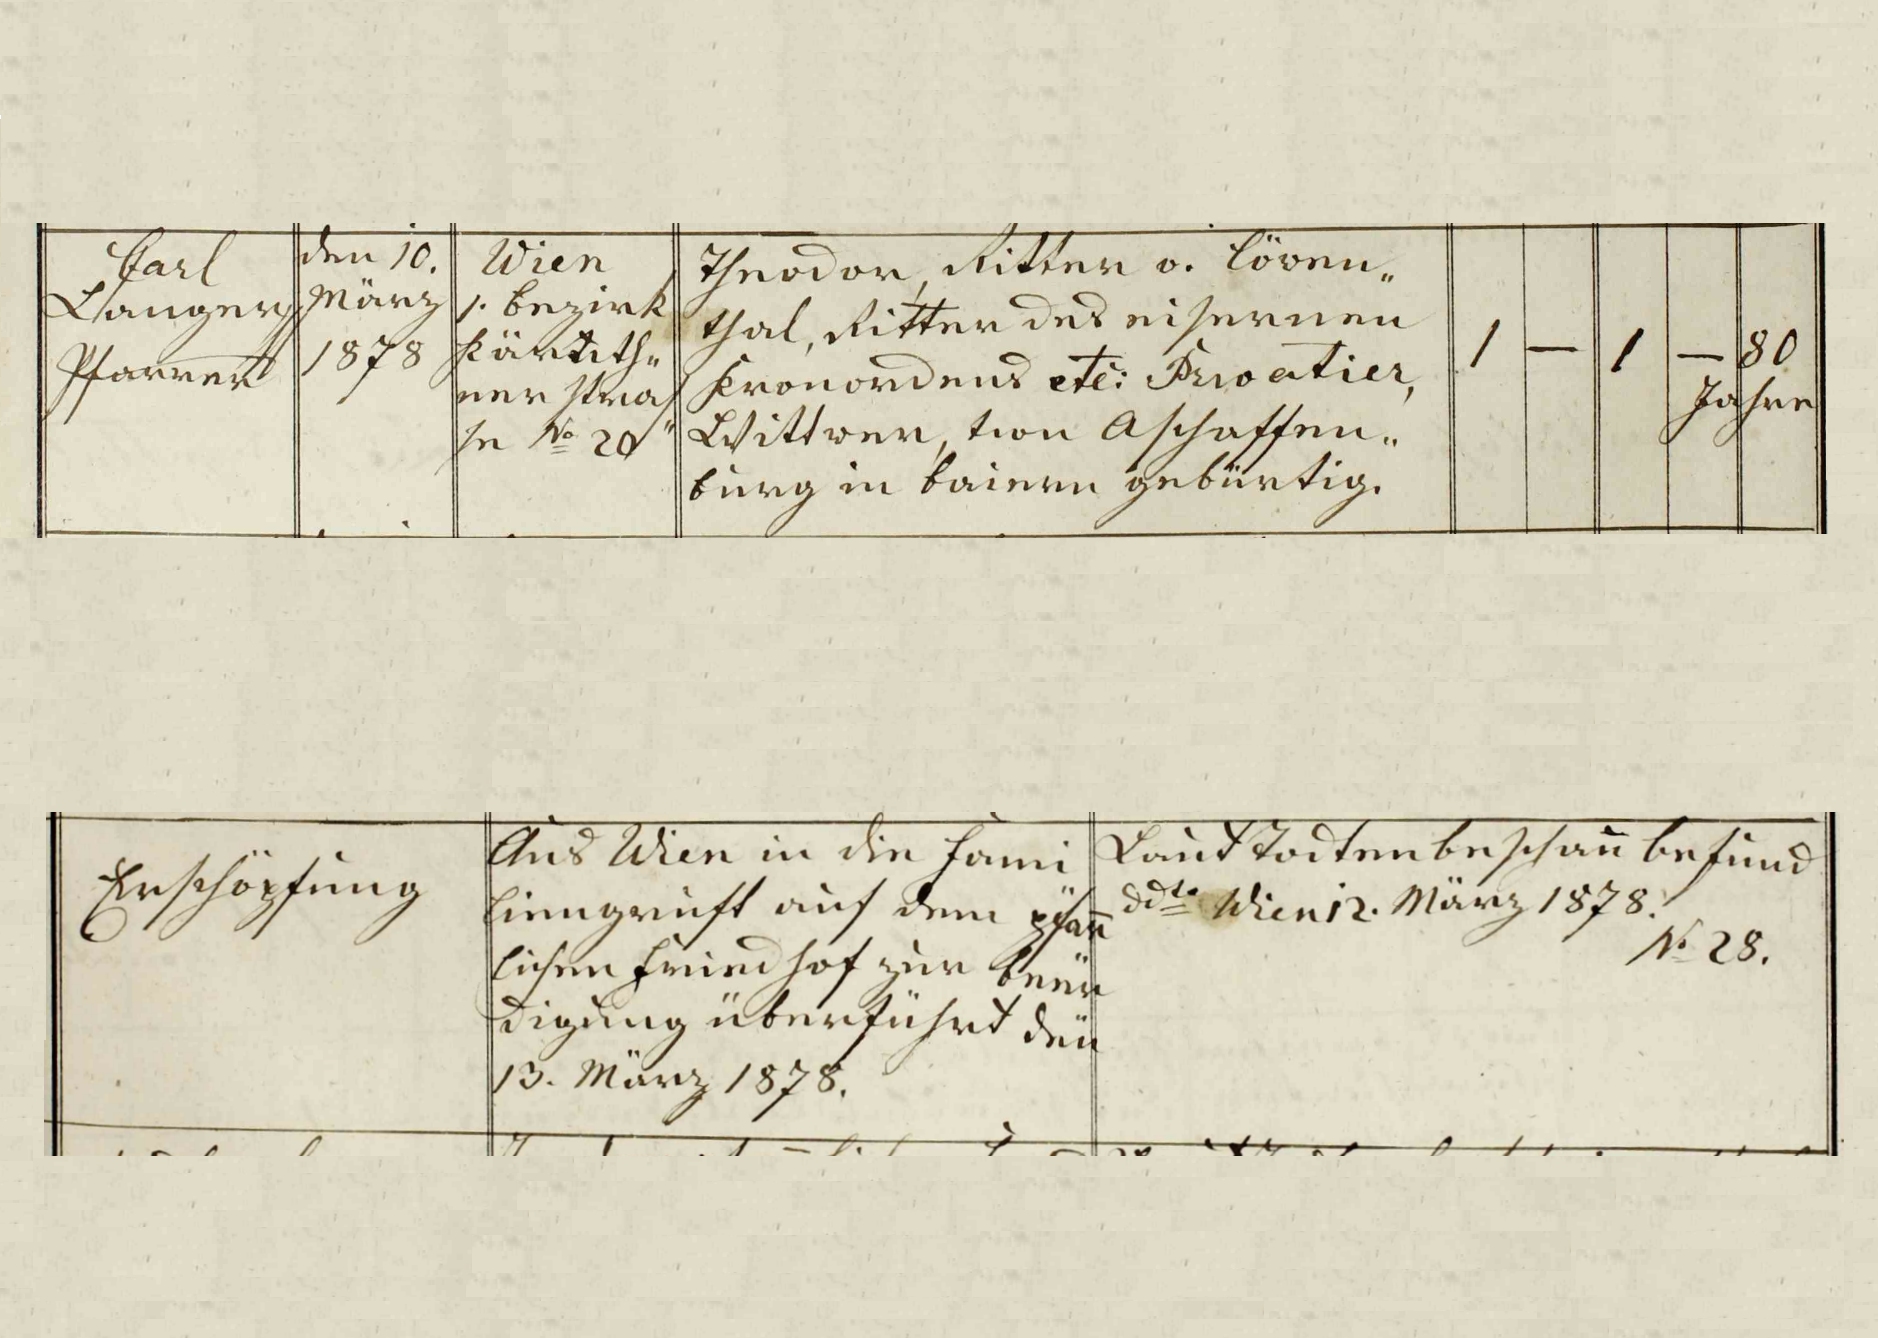 Carl
Langer
Pfarrer
den 10.
März
1878
Wien
1. Bezirk
Kärnth„
ner Stra„
ße No 20
Theodor, Ritter v. Löven„
thal, Ritter des eisernen
Kronordens etc: Privatier,
Wittwer, von Aschaffen„
burg in Baiern gebürtig.
1 — 1 — 80
Jahre
Erschöpfung
Aus Wien in die Fami
liengruft auf dem pfarr
lichen Friedhof zur Beer
digung überführt den
13. März 1878.
Laut Todtenbeschau befund
ddto Wien 12. März 1878.
No 28.